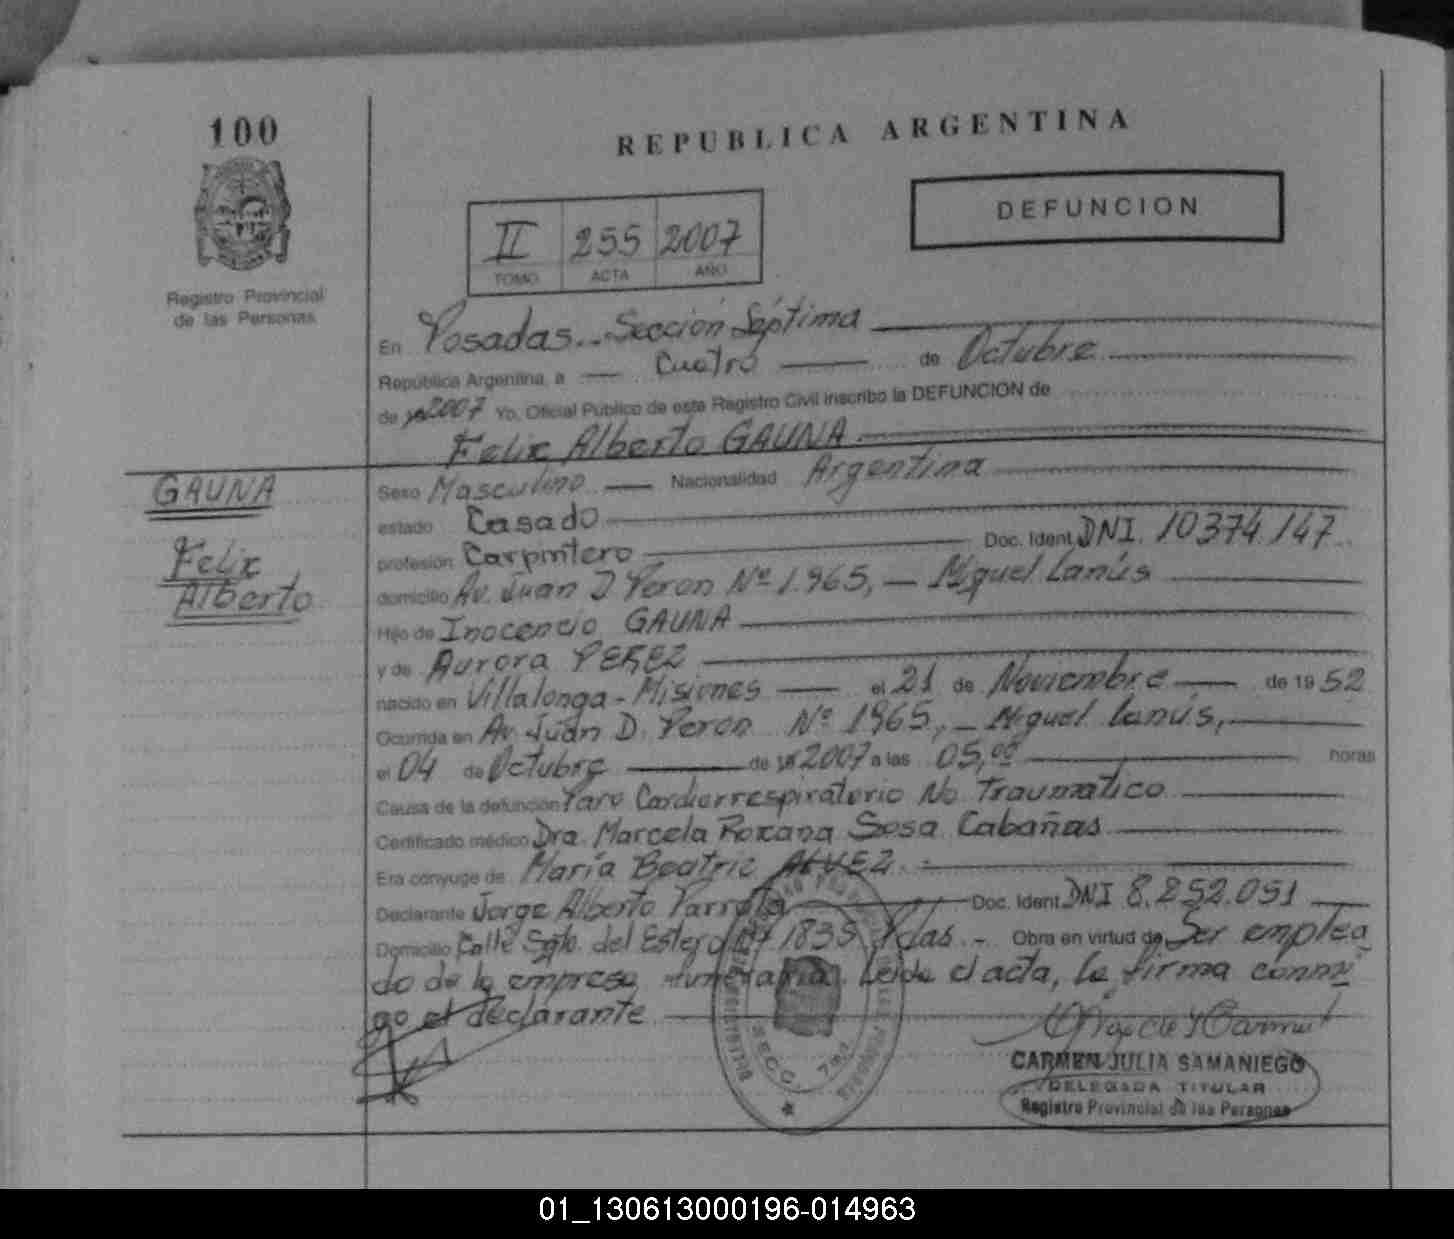 100
REPUBLICA ARGENTINA
DEFUNCION
II 255 2007
TOMO ACTA AÑO
Registro Provincial
de las Personas
En Posadas.. Sección Séptima
República Argentina, a Cuatro de Octubre
de 2007 Yo, Oficial Público de este Registro Civil inscribo la DEFUNCION de
Felix Alberto GAUNA
GAUNA
Felix
Alberto
Sexo Masculino Nacionalidad Argentina
estado Casado
profesión Carpintero Doc. Ident. DNI. 10374.147
domicilio Av. Juan D Peron Nº 1.965, - Miguel Lanús
Hijo de Inocencio GAUNA
y de Aurora PEREZ
nacido en Villalonga - Misiones el 21 de Noviembre de 19 52
Ocurrida en Av. Juan D. Peron Nº 1965, - Miguel Lanús,
el 04 de Octubre de 2007 a las 05,00 horas
Causa de la defunción Paro Cardiorrespiratorio No Traumatico
Certificado médico Dra. Marcela Roxana Sosa Cabañas
Era cónyuge de María Beatriz ALVEZ. -
Declarante Jorge Alberto Doc. Ident. DNI 8.252.051
Domicilio Calle Sgto. del Estero Nº 1835 Pdas. - Obra en virtud de Ser emplea
do de la empresa funeraria. Leída el acta, la firma conmi
go el declarante
SECC. 7ma
CARMEN JULIA SAMANIEGO
DELEGADA TITULAR
Registro Provincial de las Personas
01_130613000196-014963